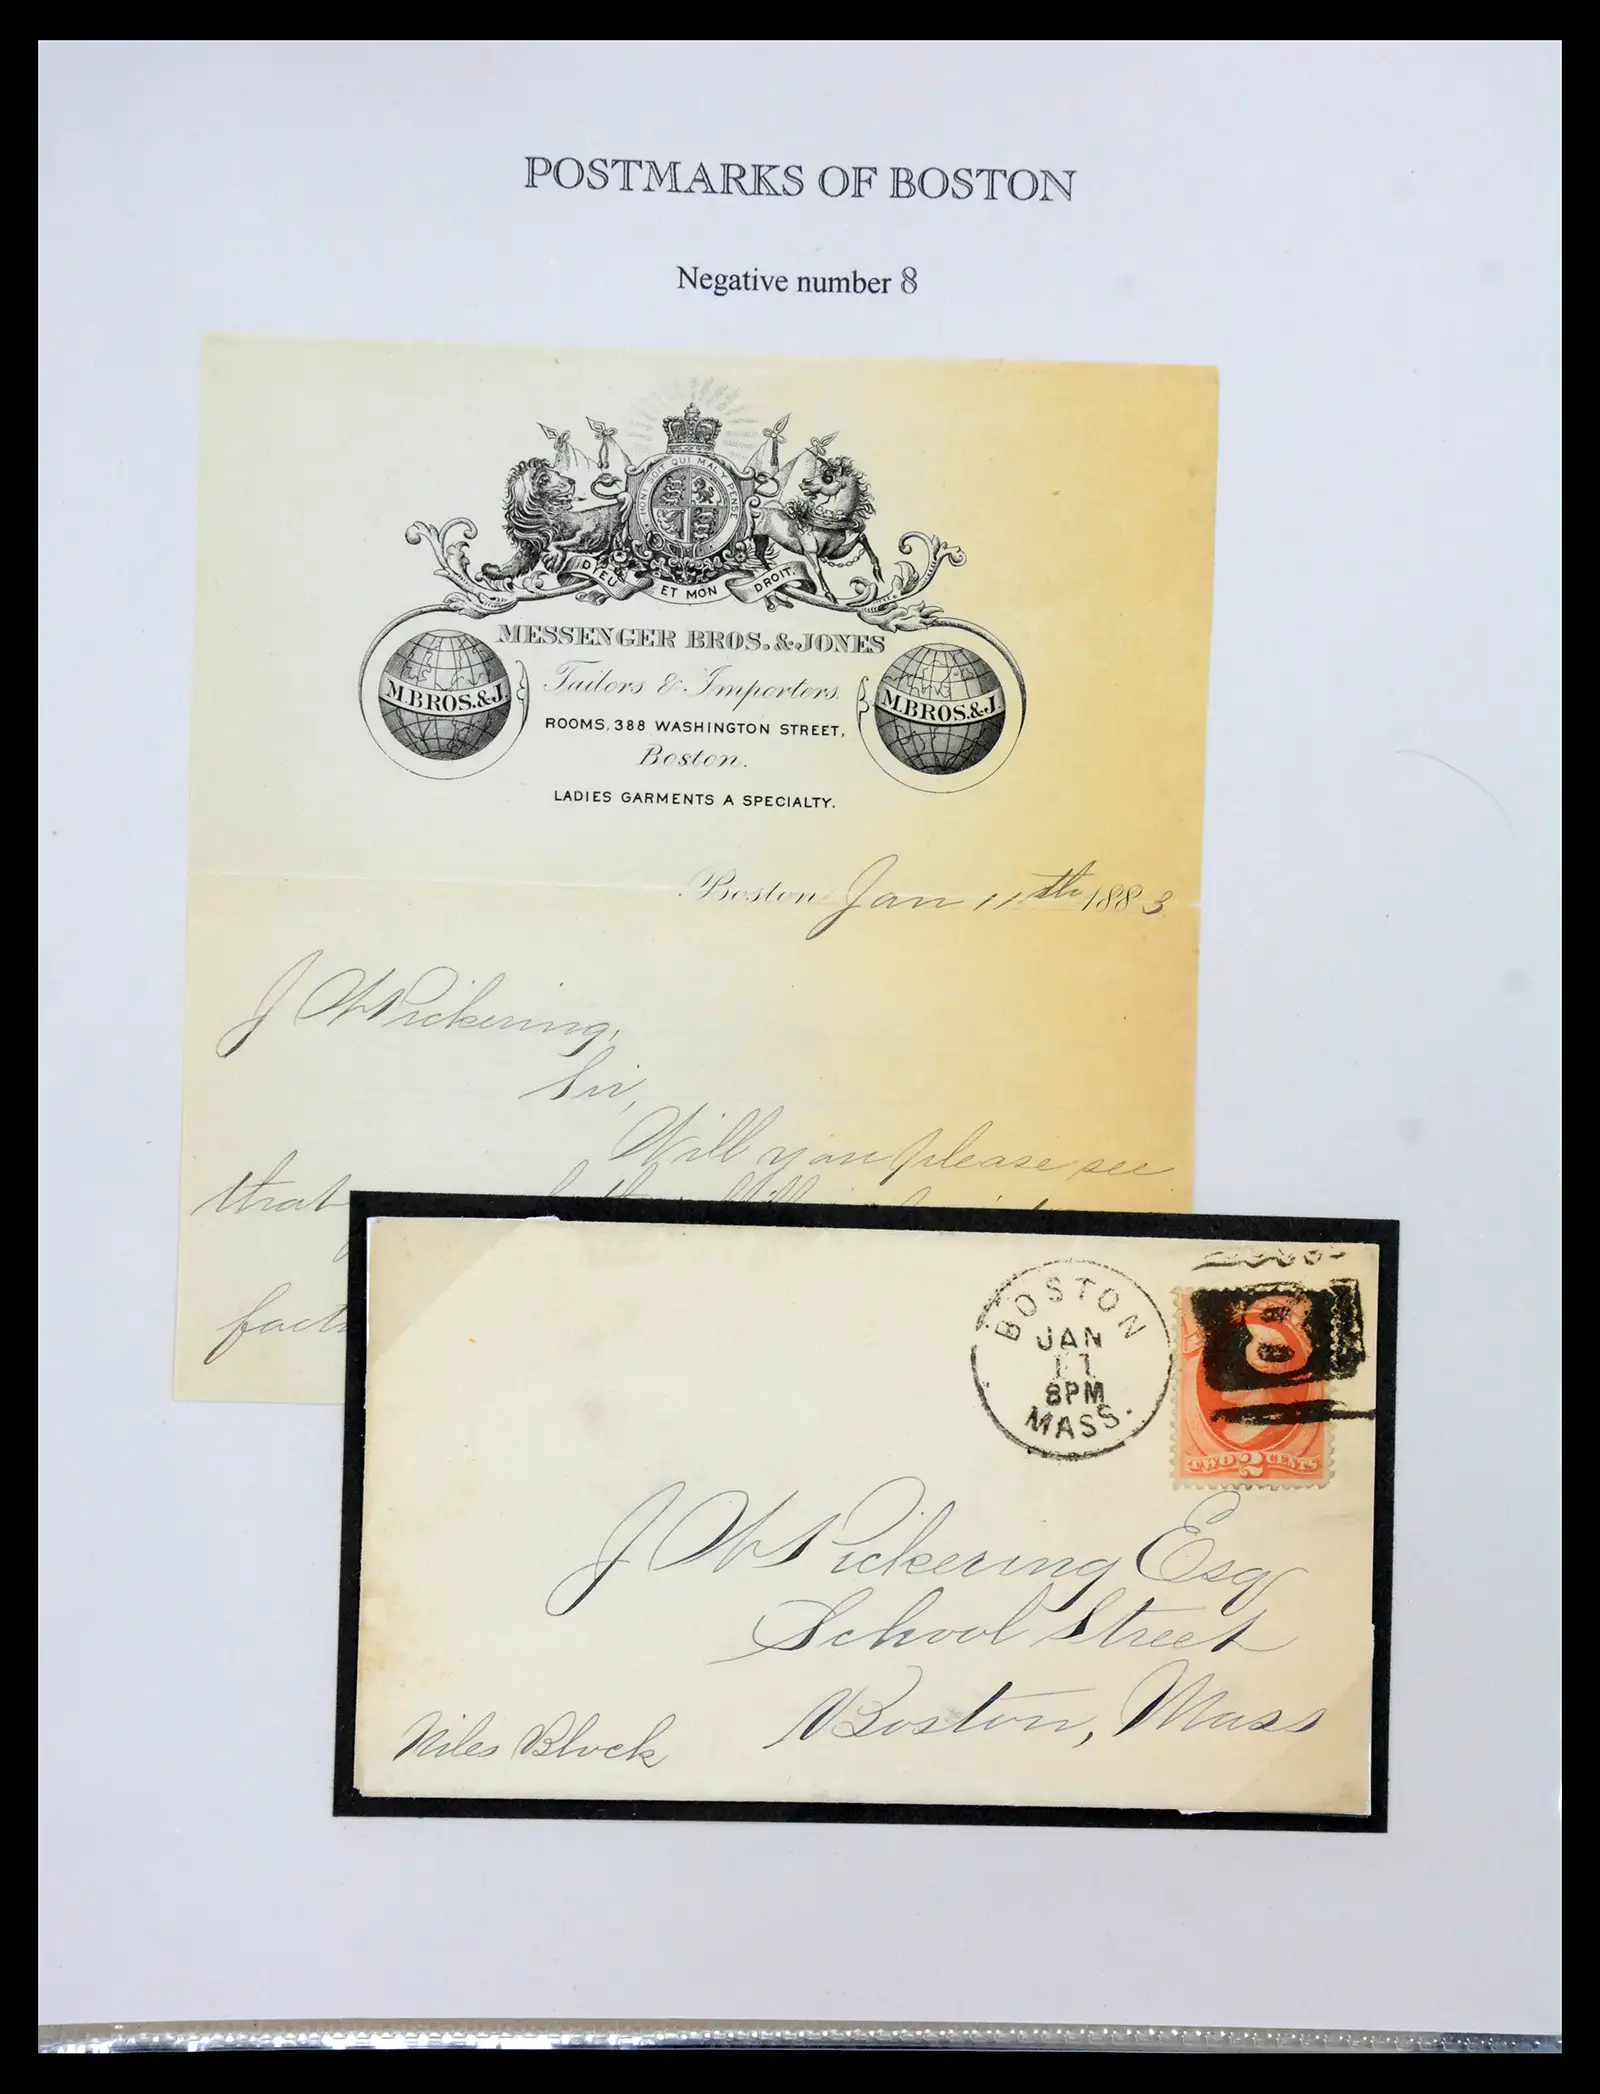 POSTMARKS OF BOSTON
Negative number 8
HONI SOIT QUI MAL Y PENSE
DIEU ET MON DROIT.
MESSENGER BROS. & JONES
M. BROS. & J.
Tailors & Importers.
M. BROS. & J.
ROOMS, 388 WASHINGTON STREET,
Boston.
LADIES GARMENTS A SPECIALTY.
Boston Jan 11th 1883
J W Pickering,
Sir,
Will you please see
that
BOSTON
JAN
11
8PM
MASS.
8
TWO 2 CENTS
J W Pickering Esq
School Street
Boston, Mass
Niles Block